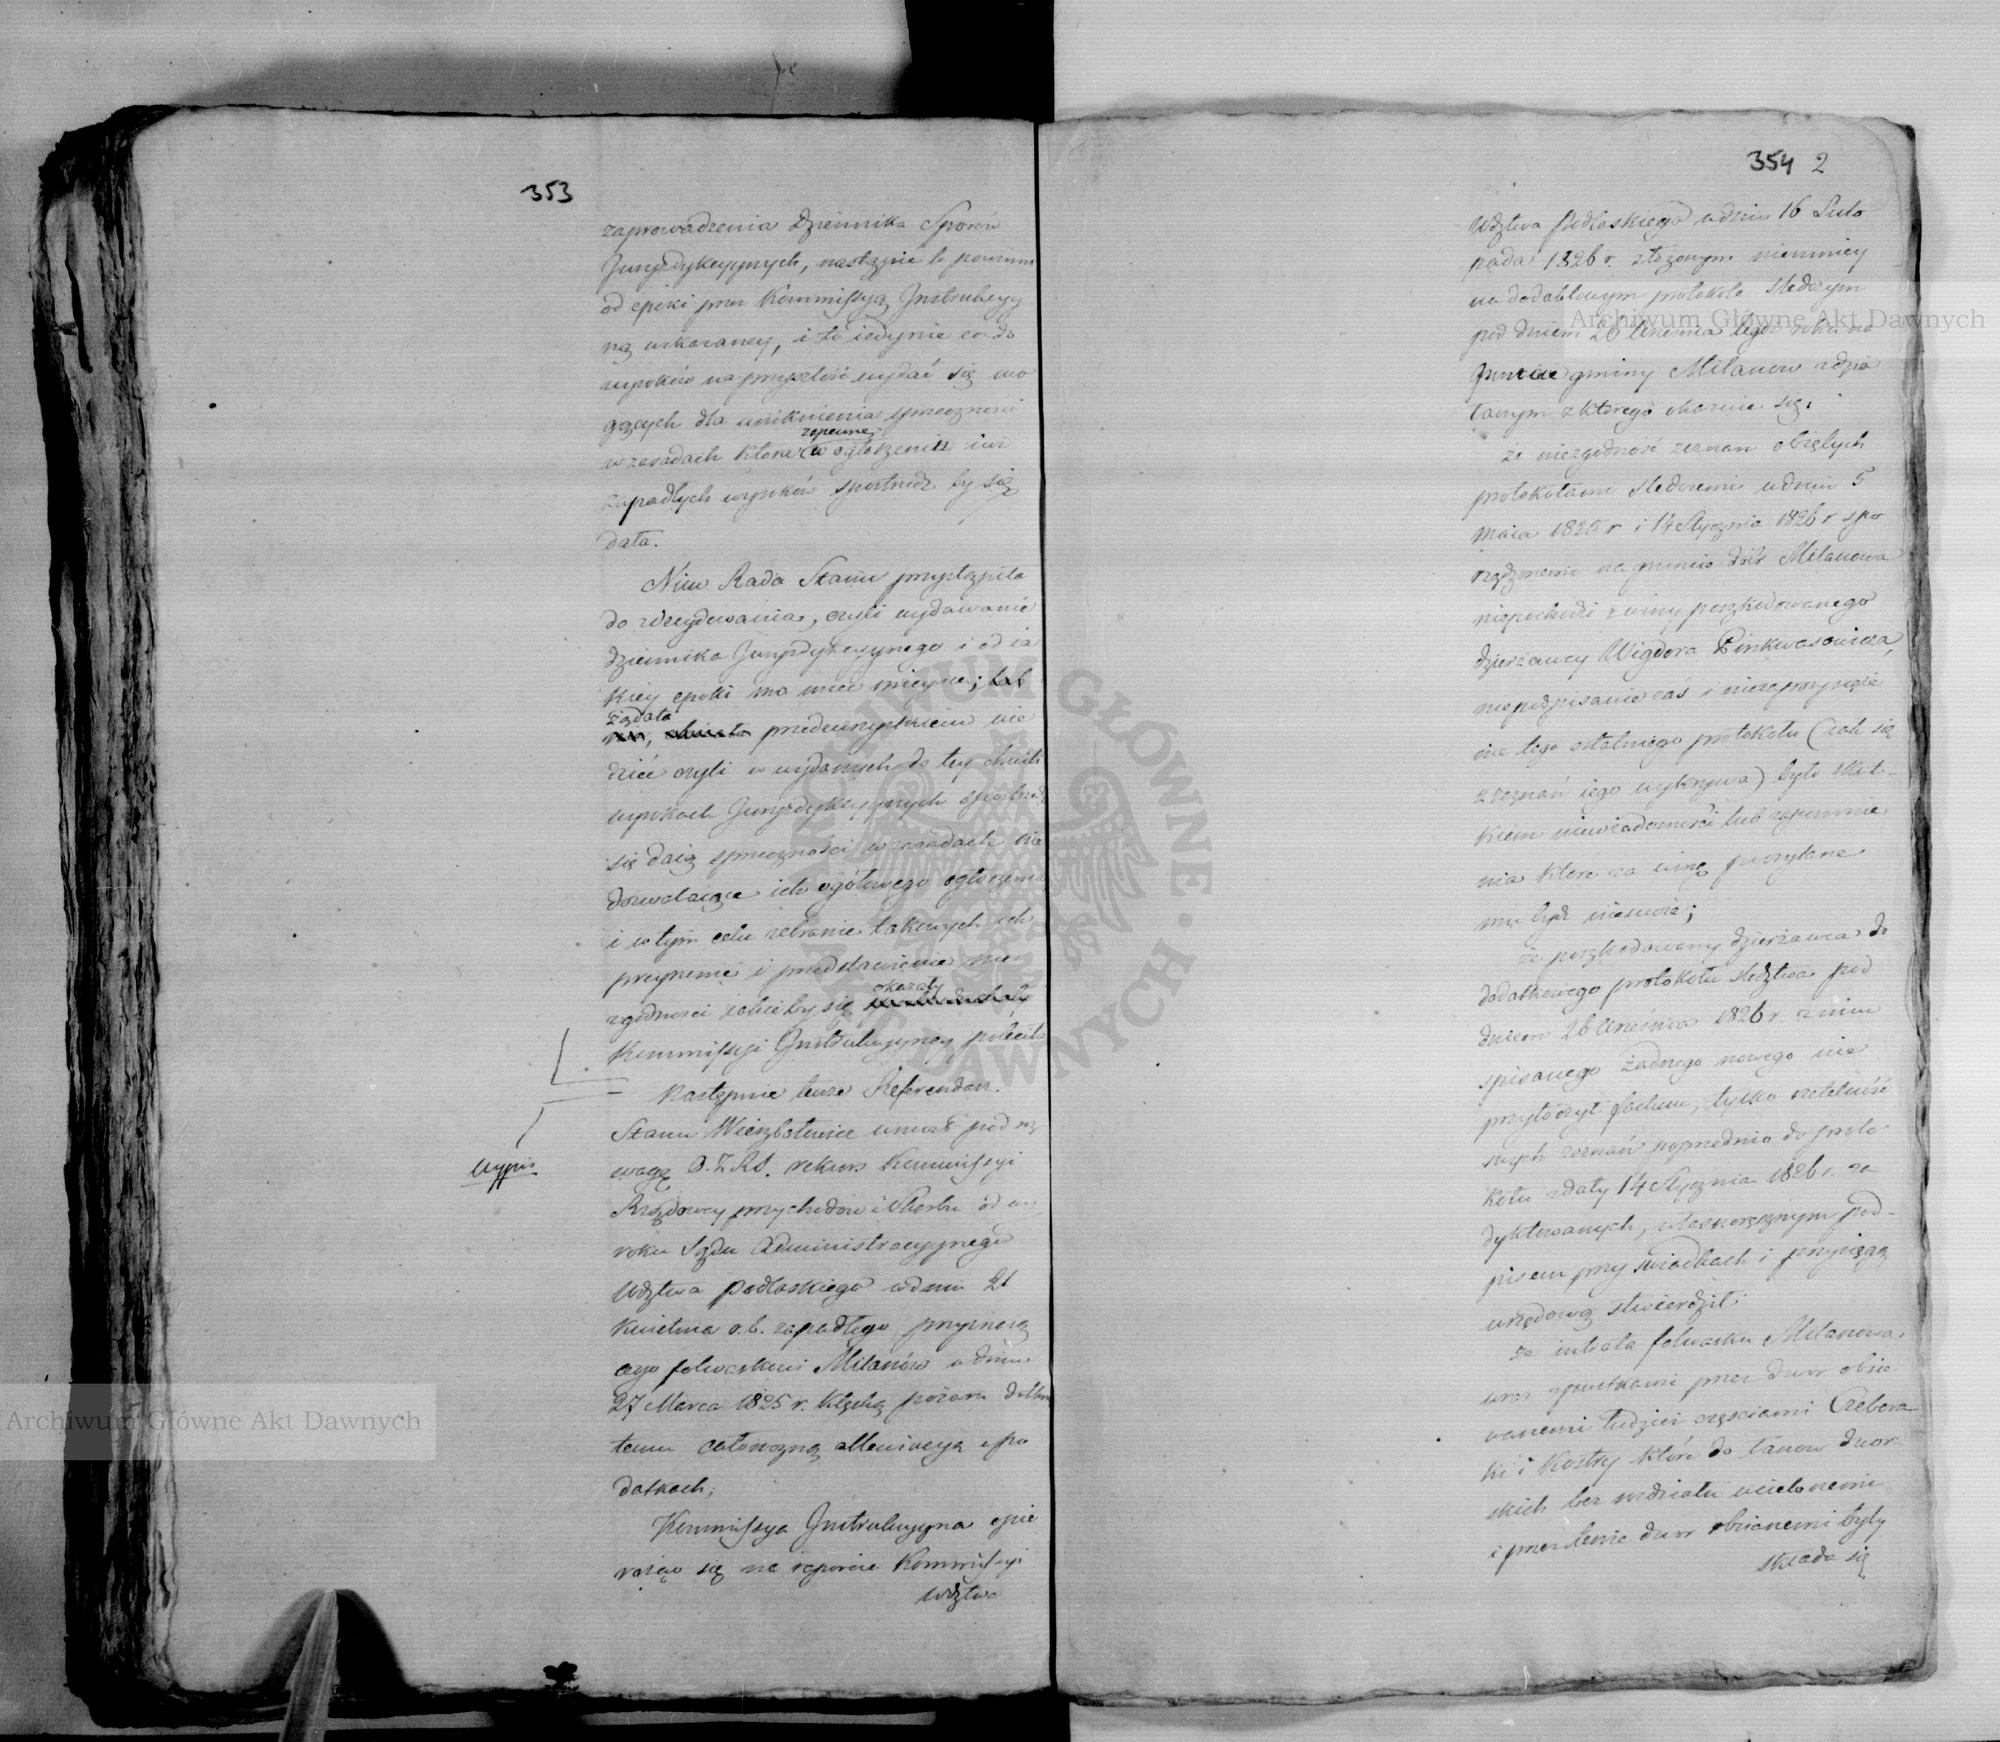 353
zaprowadzenia Dziennika Sporów
Juryzdykcyjnych, nastąpić to powinno
od epoki przez Kommissyą Instrukcyy
ną wskazaney, i to iedynie co do
wyroków na przyszłość wydać się mo
gących dla uniknienia sprzeczności
zapewne
w zasadach która w ogłoszeniu iuż
zapadłych wyroków spostrzedz by się
dała.
Nim Rada Stanu przystąpiła
do zdecydowania, czyli wydawanie
dziennika Juryzdykcyynego i od ia
kiey epoki ma mieć mieysce;
żądała
przedewszystkiem wie
dzieć czyli w wydanych do tey chwili
wyrokach Juryzdykcyynych spostrzedz
się daią sprzeczności w zasadach nie
dozwalaiące ich ogółowego ogłoszenia
i w tym celu zebranie takowych ich
przeyrzenie i przedstawienie nie
okazały
zgodności iakieby się
Kommissyi Instrukcyyney poleciła
Następnie tenże Referendarz
Stanu Wierzbołowicz wniósł pod roz
wypis
wagę O. Z. Rd. rekurs Kommissyi
Rządowey przychodów i Skarbu od wy
roku Sądu Administracyynego
Wdztwa Podlaskiego w dniu 21
Kwietnia r. b. zapadłego przyznaią
cego folwarkowi Milanów w dniu
27 Marca 1825 r. Klęską pożaru dotknię
temu całoroczną allewiacyą w po
datkach;
Kommissya Instrukcyyna opie
raiąc się na raporcie Kommissyi
Wdztwa
354 2
Wdztwa Podlaskiego w dniu 16 Listo
pada 1826 r. złożonym niemniey
na dodatkowym protokole śledczym
pod dniem 26 Września tegoż roku na
gruncie gminy Milanow zdzia
łanym z którego okazuie się:
że niezgodność zeznań obiętych
protokołami śledczemi w dniu 5
Maia 1825 r i 14 Stycznia 1826 r spo
rządzonemi na gruncie dóbr Milanowa
niepochodzi z winy poszkodowanego
dzierżawcy Wigdora Pinkwasowicza,
niepodpisanie zaś i niezaprzysięże
nie tego ostatniego protokołu (iak się
z zeznań iego wykrywa) było skut-
kiem niewiadomości lub zapomnie
nia które za winę poczytane
mu bydź niemoże;
że poszkodowany dzierżawca do
dodatkowego protokołu śledztwa pod
dniem 26 Września 1826 r. z nim
spisanego żadnego nowego nie
przytoczył factum, tylko rzetelność
swych zeznań poprzednio do proto
kołu z daty 14 Stycznia 1826 r. za
dyktowanych, własnoręcznym pod-
pisem przy świadkach i przysięgą
urzędową stwierdził:
że intrata folwarku Milanowa
wraz z pustkami przez dwór obsie
wanemi tudzież częściami Czebera
ki i Kostry które do łanów dwor
skich bez wydziału wcielonemi
i przez tenże dwór obsianemi były
składa się
Archiwum Główne Akt Dawnych
Archiwum Główne Akt Dawnych
ARCHIWUM GŁÓWNE AKT DAWNYCH